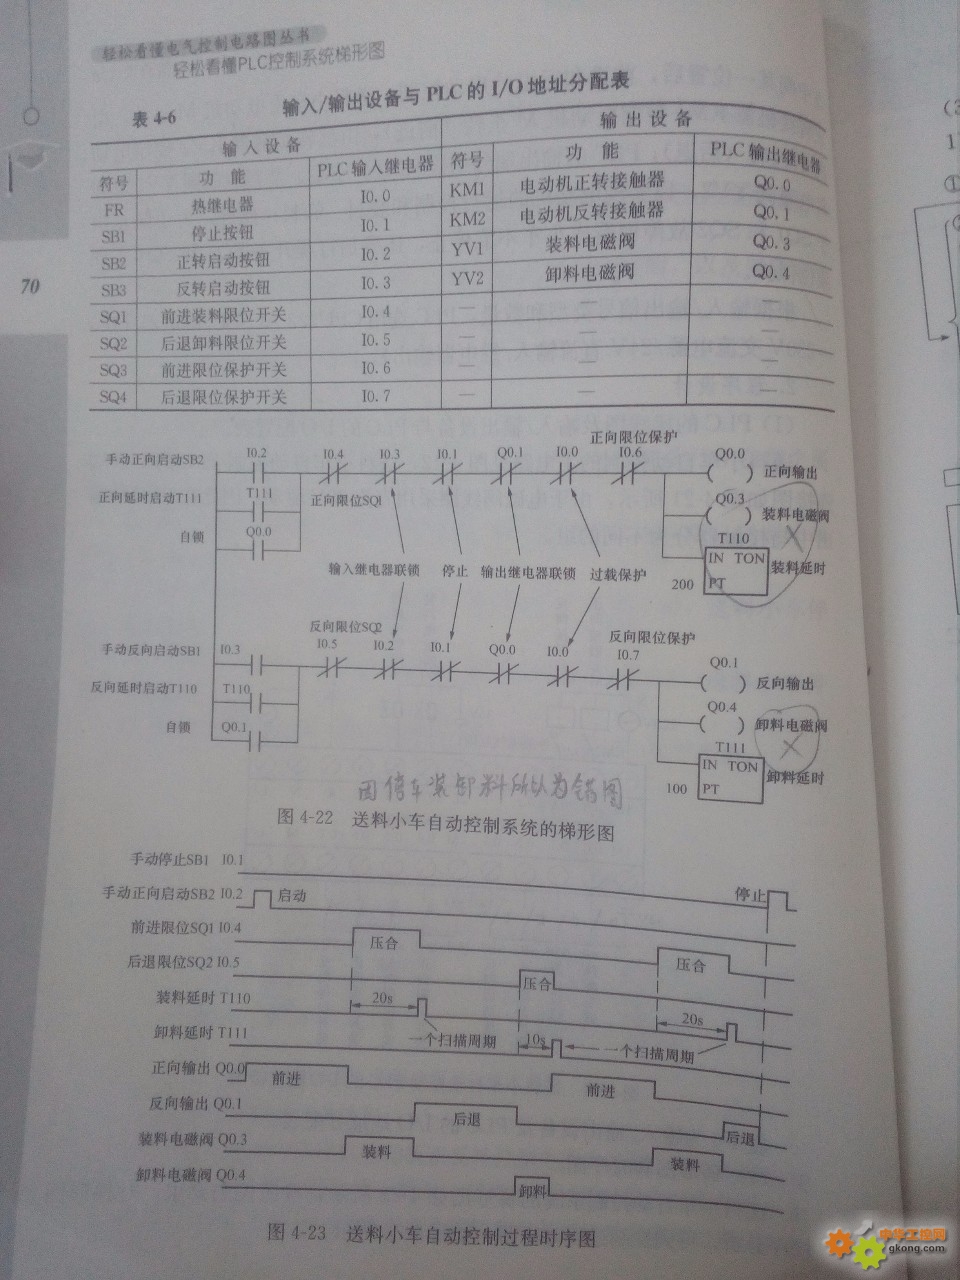 轻松看懂电气控制电路图丛书
轻松看懂PLC控制系统梯形图
表 4-6 输入/输出设备与 PLC 的 I/O 地址分配表
输入设备 输出设备
符号 功能 PLC 输入继电器 符号 功能 PLC 输出继电器
FR 热继电器 I0.0 KM1 电动机正转接触器 Q0.0
SB1 停止按钮 I0.1 KM2 电动机反转接触器 Q0.1
SB2 正转启动按钮 I0.2 YV1 装料电磁阀 Q0.3
SB3 反转启动按钮 I0.3 YV2 卸料电磁阀 Q0.4
SQ1 前进装料限位开关 I0.4 — — —
SQ2 后退卸料限位开关 I0.5 — — —
SQ3 前进限位保护开关 I0.6 — — —
SQ4 后退限位保护开关 I0.7 — — —
70
正向限位保护
手动正向启动SB2 I0.2 I0.4 I0.3 I0.1 Q0.1 I0.0 I0.6 Q0.0 正向输出
正向延时启动T111 T111 正向限位SQ1 Q0.3 装料电磁阀
自锁 Q0.0 T110
IN TON 装料延时
200 PT
输入继电器联锁 停止 输出继电器联锁 过载保护
反向限位SQ2 反向限位保护
手动反向启动SB1 I0.3 I0.5 I0.2 I0.1 Q0.0 I0.0 I0.7 Q0.1 反向输出
反向延时启动T110 T110 Q0.4 卸料电磁阀
自锁 Q0.1 T111
IN TON 卸料延时
100 PT
因停车装卸料所以为错图
图 4-22 送料小车自动控制系统的梯形图
手动停止SB1 I0.1 停止
手动正向启动SB2 I0.2 启动
前进限位SQ1 I0.4 压合 压合
后退限位SQ2 I0.5 压合
装料延时 T110 20s 一个扫描周期 20s
卸料延时 T111 10s 一个扫描周期
正向输出 Q0.0 前进 前进
反向输出 Q0.1 后退 后退
装料电磁阀 Q0.3 装料 装料
卸料电磁阀 Q0.4 卸料
图 4-23 送料小车自动控制过程时序图
中华工控网
gkong.com
(3
1
①